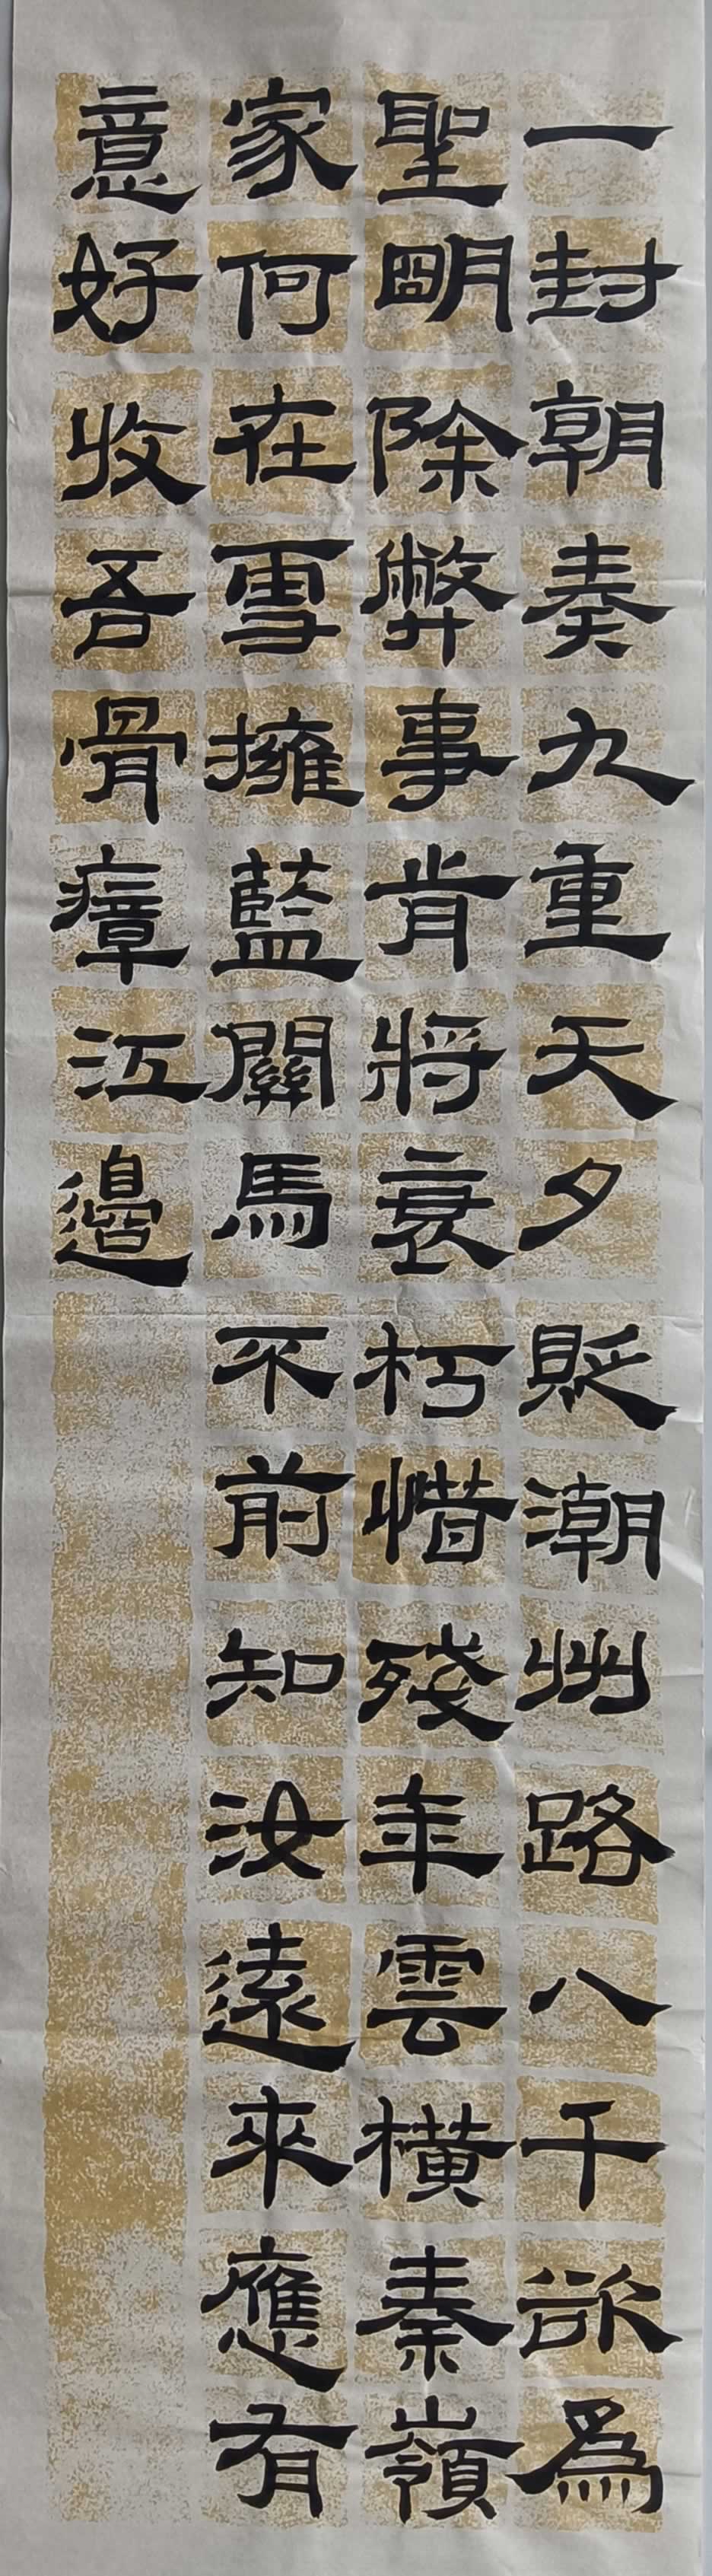 一封朝奏九重天夕貶潮州路八千欲爲
聖明除弊事肯將衰朽惜殘年雲橫秦嶺
家何在雪擁藍關馬不前知汝遠來應有
意好收吾骨瘴江邊